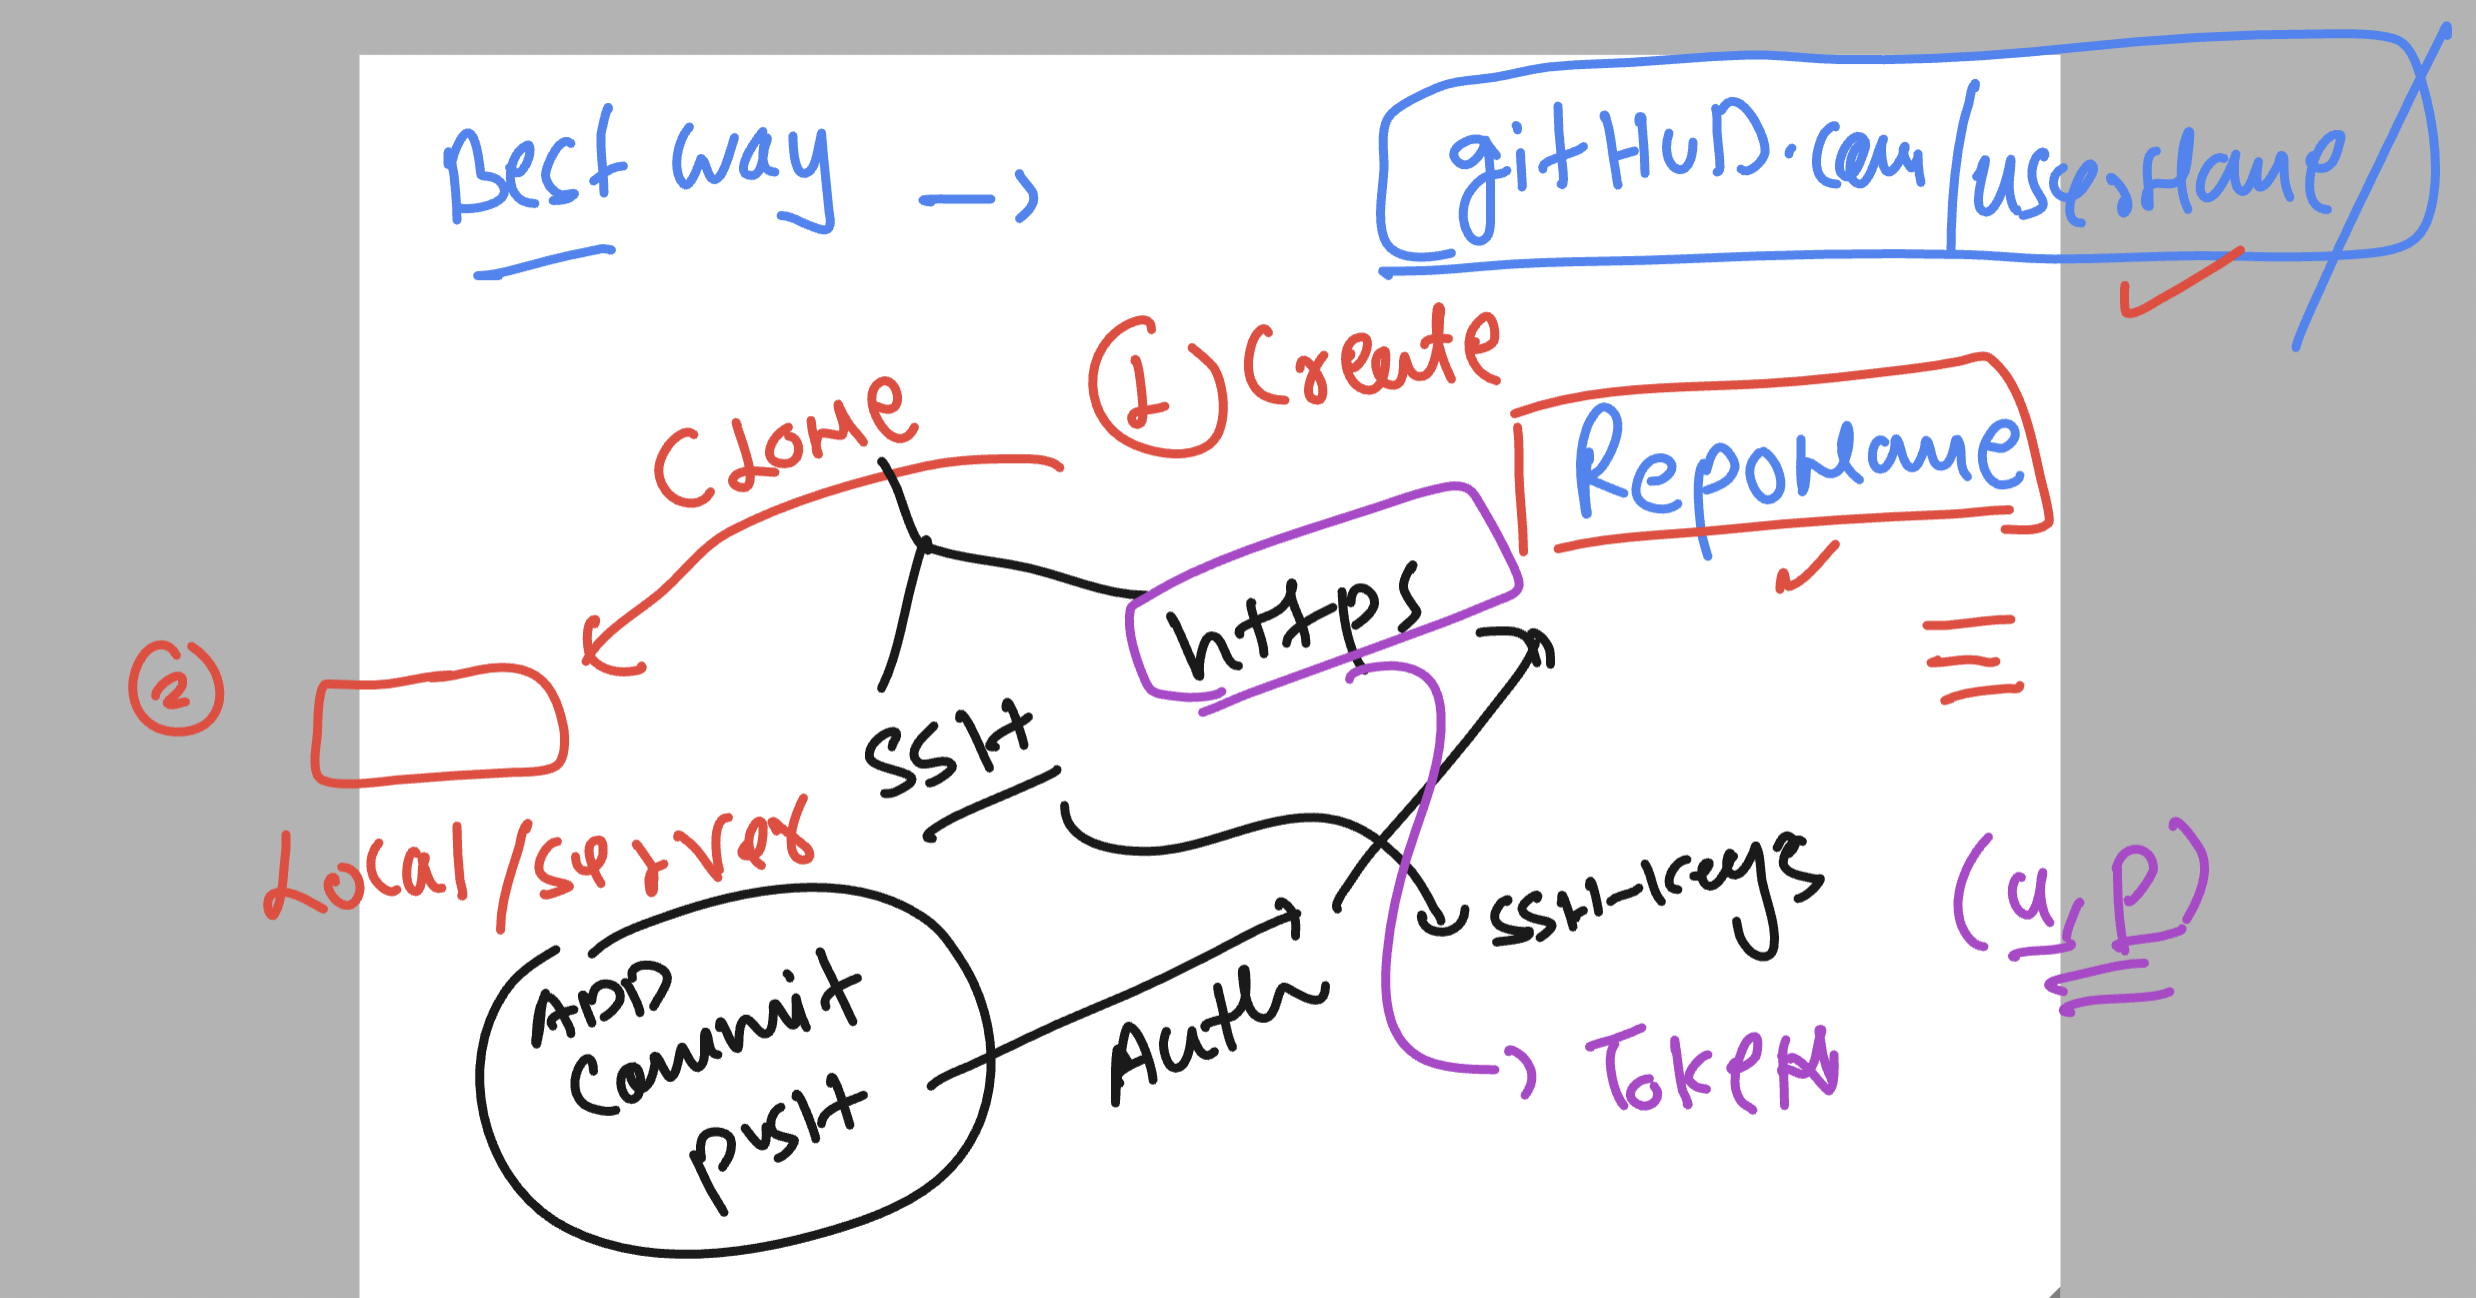 Best way →
gitHuD.com/userName
① Create
Clone
RepoName
https
②
SSH
Local/server
SSH-keys
(u, P)
ADD
Commit
push
Auth
Token